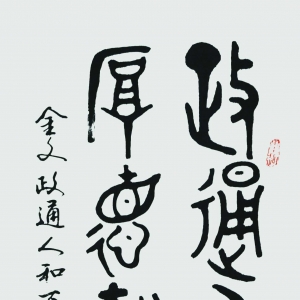 政通
厚德
金文政通人和